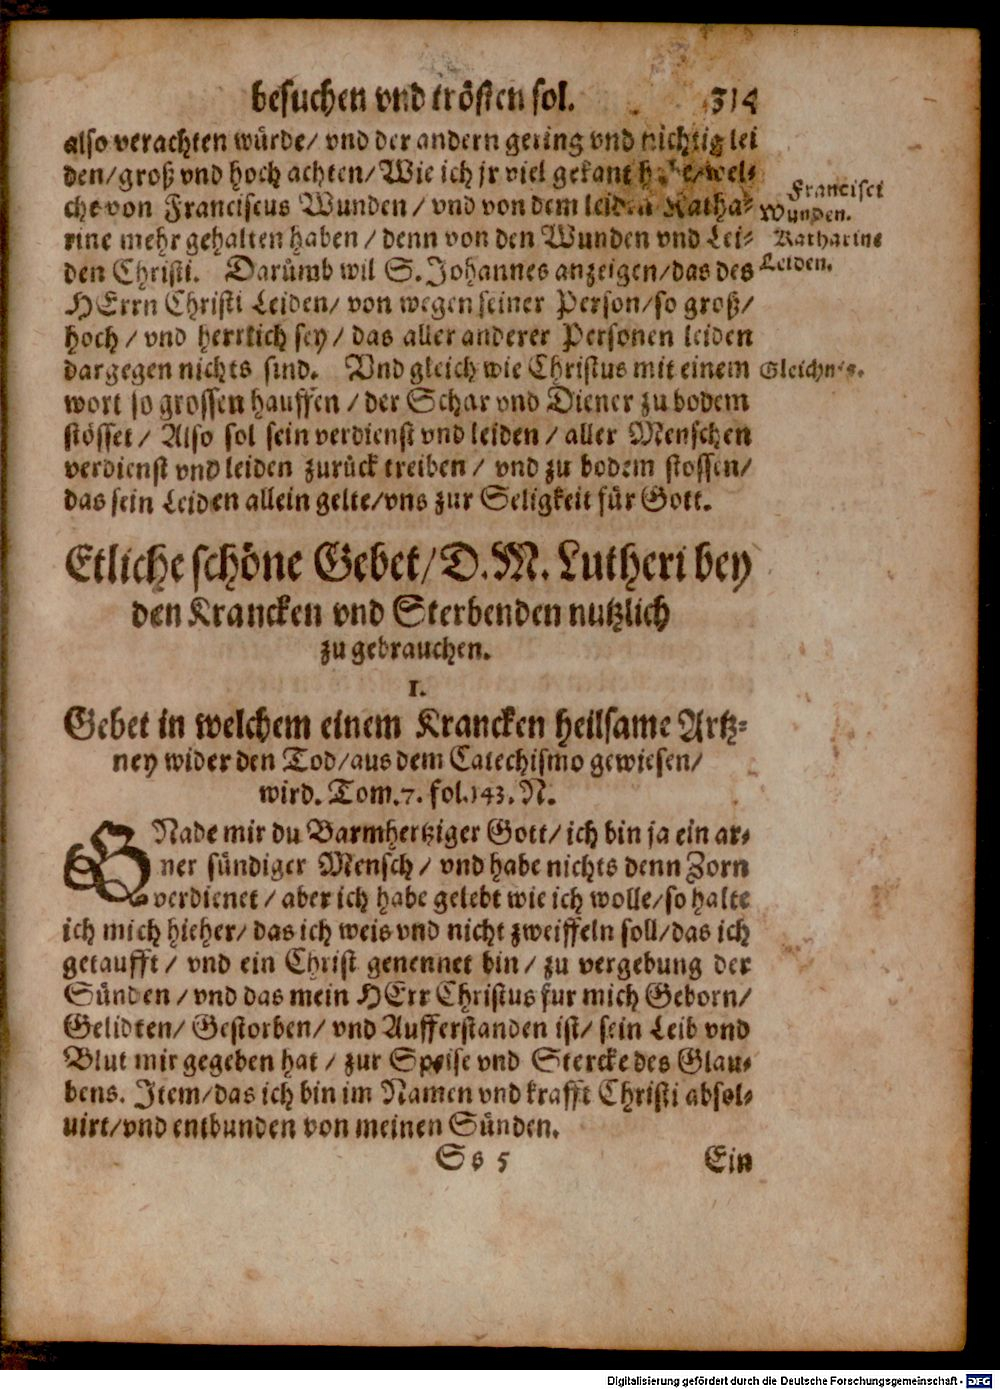 besuchen vnd trösten sol. 314
also verachten würde/ vnd der andern gering vnd nichtig lei
den/groß vnd hoch achten/Wie ich jr viel gekant /wel⸗
che von Franciscus Wunden/ vnd von dem leiden Katha⸗
rine mehr gehalten haben/ denn von den Wunden vnd Lei⸗
den Christi. Darümb wil S. Johannes anzeigen/das des
HErrn Christi Leiden/ von wegen seiner Person/so groß/
hoch/ vnd herrlich sey/ das aller anderer Personen leiden
dargegen nichts sind. Vnd gleich wie Christus mit einem
wort so grossen hauffen/ der Schar vnd Diener zu bodem
stösset/ Also sol sein verdienst vnd leiden/ aller Menschen
verdienst vnd leiden zurück treiben/ vnd zu bodem stossen/
das sein Leiden allein gelte/vns zur Seligkeit für Gott.
Francisci
Wunden.
Katharine
Leiden.
Gleichnis.
Etliche schöne Gebet/D. M. Lutheri bey
den Krancken vnd Sterbenden nutzlich
zu gebrauchen.
I.
Gebet in welchem einem Krancken heilsame Artz⸗
ney wider den Tod/aus dem Catechismo gewiesen/
wird. Tom. 7. fol. 143. N.
GNade mir du Barmhertziger Gott/ ich bin ja ein ar⸗
ner sündiger Mensch/ vnd habe nichts denn Zorn
verdienet/ aber ich habe gelebt wie ich wolle/so halte
ich mich hieher/ das ich weis vnd nicht zweiffeln soll/das ich
getaufft/ vnd ein Christ genennet bin/ zu vergebung der
Sünden/vnd das mein HErr Christus fur mich Geborn/
Gelidten/ Gestorben/ vnd Aufferstanden ist/ sein Leib vnd
Blut mir gegeben hat/ zur Speise vnd Stercke des Glau⸗
bens. Item/das ich bin im Namen vnd krafft Christi absol⸗
uirt/vnd entbunden von meinen Sünden.
Ss 5 Ein
Digitalisierung gefördert durch die Deutsche Forschungsgemeinschaft - DFG